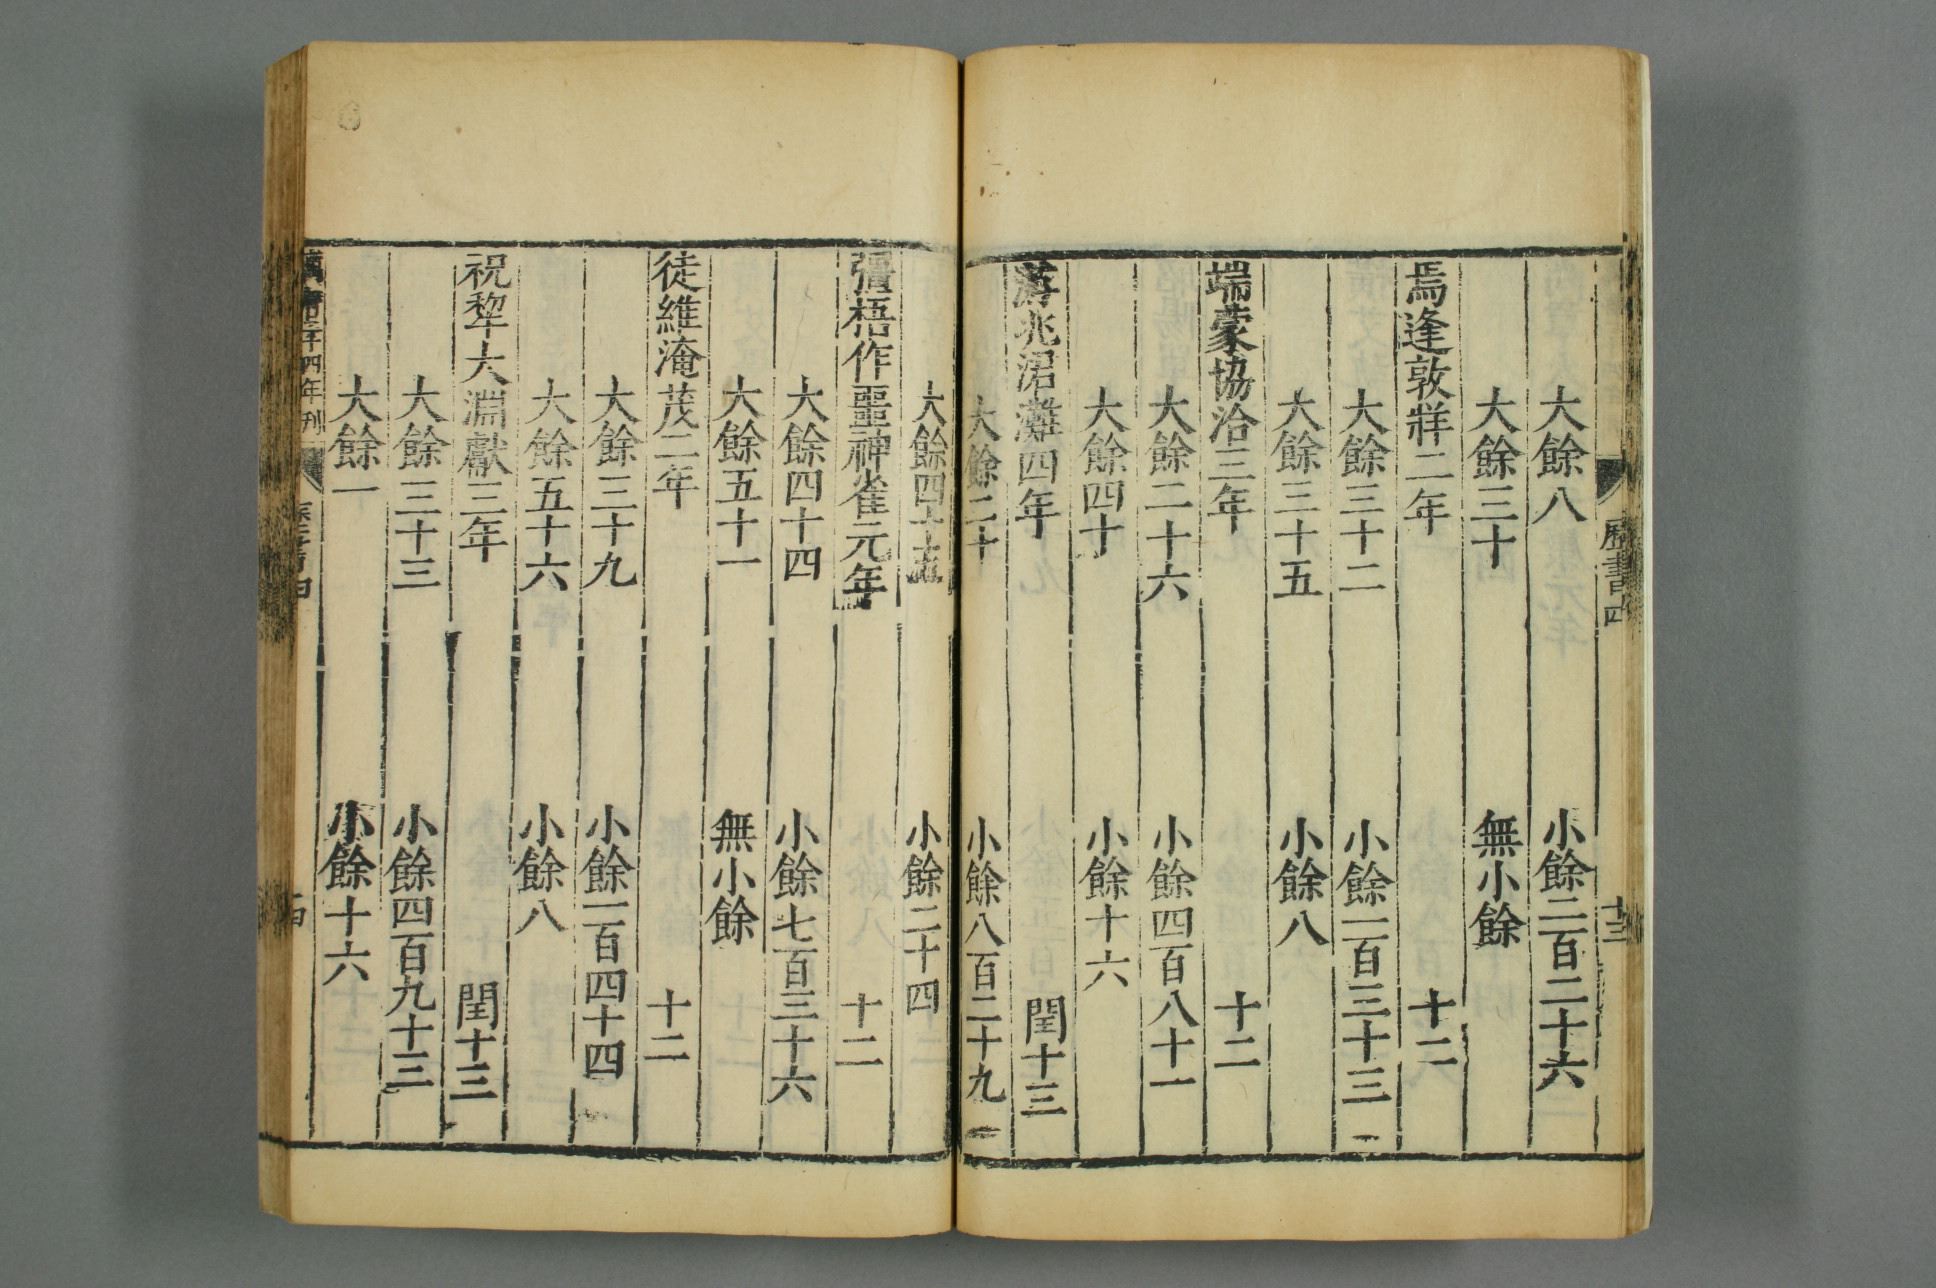 大餘八 小餘二百二十六
大餘三十 無小餘
焉逢敦牂二年 十二
大餘三十二 小餘一百三十三
大餘三十五 小餘八
端蒙協洽三年 十二
大餘二十六 小餘四百八十一
大餘四十 小餘十六
游兆涒灘四年 閏十三
大餘二十 小餘八百二十九
大餘四十五 小餘二十四
彊梧作噩神雀元年 十二
大餘四十四 小餘七百三十六
大餘五十一 無小餘
徒維淹茂二年 十二
大餘三十九 小餘一百四十四
大餘五十六 小餘八
祝犂大淵獻三年 閏十三
大餘三十三 小餘四百九十三
大餘一 小餘十六
歷書四
十三
四年刊